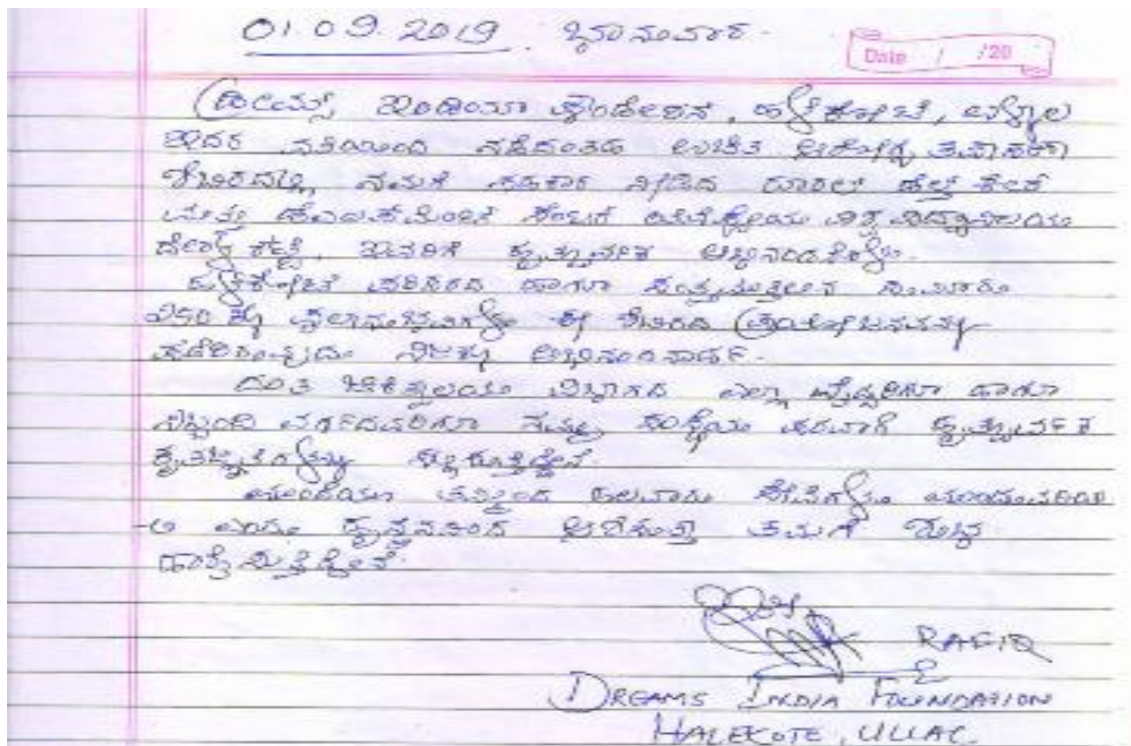 01.09.2019 ಭಾನುವಾರ.
Date / /20
ಡ್ರೀಮ್ಸ್ ಇಂಡಿಯಾ ಫೌಂಡೇಶನ್, ಹಳೆಕೋಟೆ, ಉಳ್ಳಾಲ
ಇದರ ವತಿಯಿಂದ ನಡೆದಂತಹ ಉಚಿತ ಆರೋಗ್ಯ ತಪಾಸಣಾ
ಶಿಬಿರದಲ್ಲಿ ನಮಗೆ ಸಹಕಾರ ನೀಡಿದ ರೂರಲ್ ಹೆಲ್ತ್ ಕೇರ್
ಮತ್ತು ಡೆವಲಪ್‌ಮೆಂಟ್ ಸೆಂಟರ್ ಯೆನೆಪೋಯ ವಿಶ್ವವಿದ್ಯಾನಿಲಯ
ದೇರಳಕಟ್ಟೆ, ಇವರಿಗೆ ಹೃತ್ಪೂರ್ವಕ ಅಭಿನಂದನೆಗಳು.
ಹಳೆಕೋಟೆ ಪರಿಸರದ ಹಾಗೂ ಸುತ್ತಮುತ್ತಲಿನ ಸುಮಾರು
250 ಕ್ಕೂ ಫಲಾನುಭವಿಗಳು ಈ ಶಿಬಿರದ ಪ್ರಯೋಜನವನ್ನು
ಪಡೆದಿರುವುದು ನಿಜಕ್ಕೂ ಅಭಿನಂದನಾರ್ಹ.
ದಂತ ಚಿಕಿತ್ಸಾಲಯ ವಿಭಾಗದ ಎಲ್ಲಾ ವೈದ್ಯರಿಗೂ ಹಾಗೂ
ಸಿಬ್ಬಂದಿ ವರ್ಗದವರಿಗೂ ನಮ್ಮ ಸಂಸ್ಥೆಯ ಪರವಾಗಿ ಹೃತ್ಪೂರ್ವಕ
ಕೃತಜ್ಞತೆಗಳನ್ನು ಸಲ್ಲಿಸುತ್ತಿದ್ದೇನೆ.
ಮುಂದೆಯೂ ತಮ್ಮಿಂದ ಹಲವಾರು ಸೇವೆಗಳು ಮುಂದುವರಿಯ
-ಲಿ ಎಂದು ಹೃನ್ಮನದಿಂದ ಆಶಿಸುತ್ತಾ ತಮಗೆ ಶುಭ
ಹಾರೈಸುತ್ತಿದ್ದೇನೆ.
RAFIQ
DREAMS INDIA FOUNDATION
HALEKOTE, ULLAL.